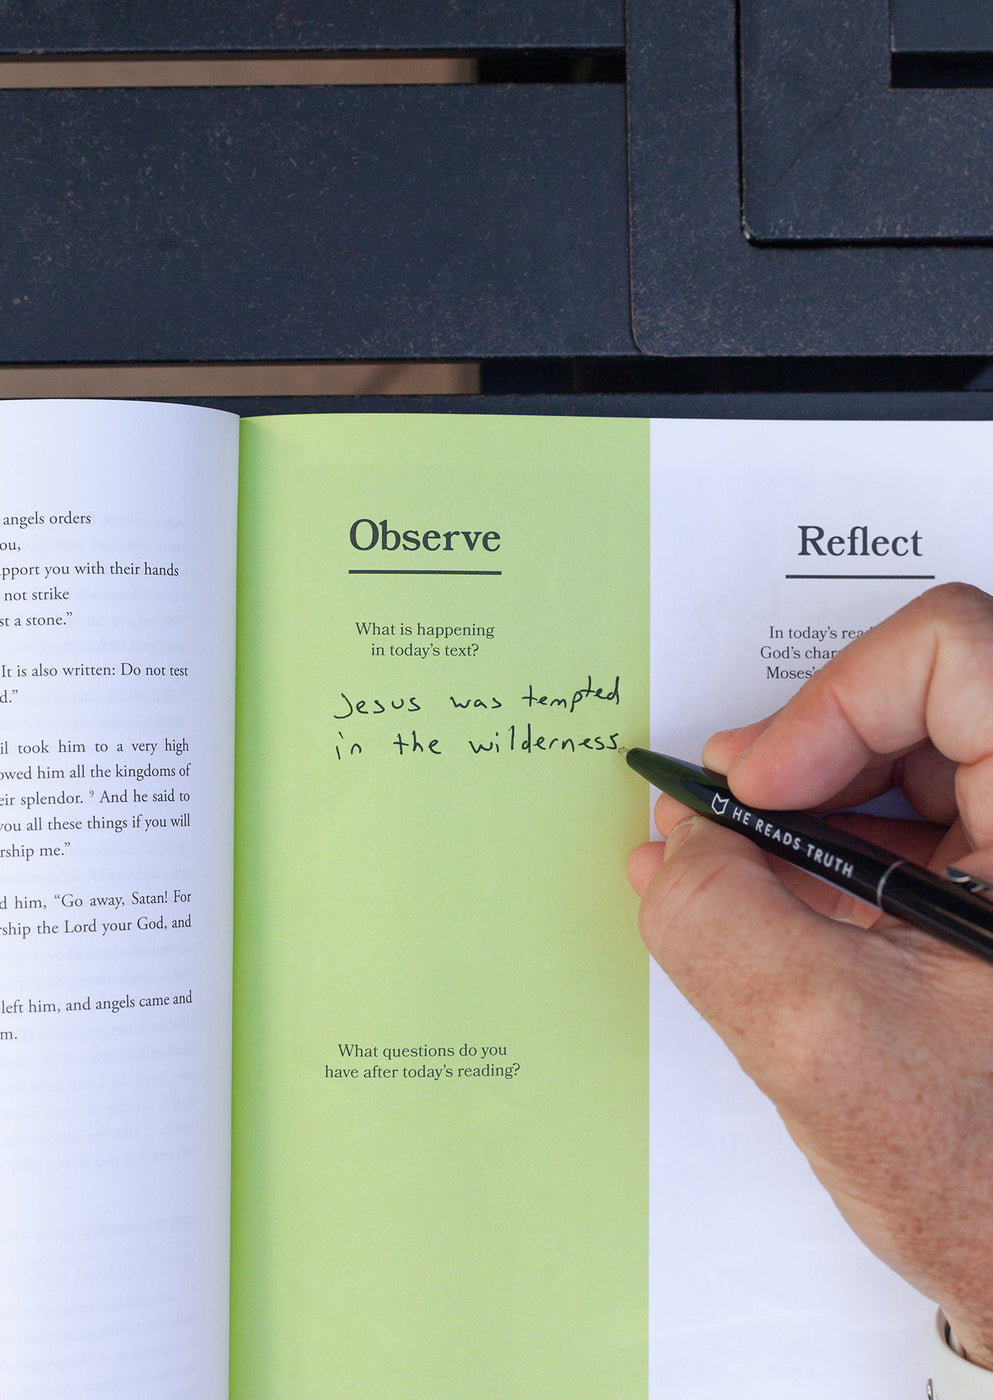 angels orders
ou,
pport you with their hands
not strike
st a stone.”
It is also written: Do not test
d.”
il took him to a very high
owed him all the kingdoms of
eir splendor. 9 And he said to
you all these things if you will
rship me.”
d him, “Go away, Satan! For
rship the Lord your God, and
left him, and angels came and
m.
Observe
What is happening
in today’s text?
Jesus was tempted
in the wilderness
What questions do you
have after today’s reading?
Reflect
In today’s rea
God’s char
Moses’s
HE READS TRUTH